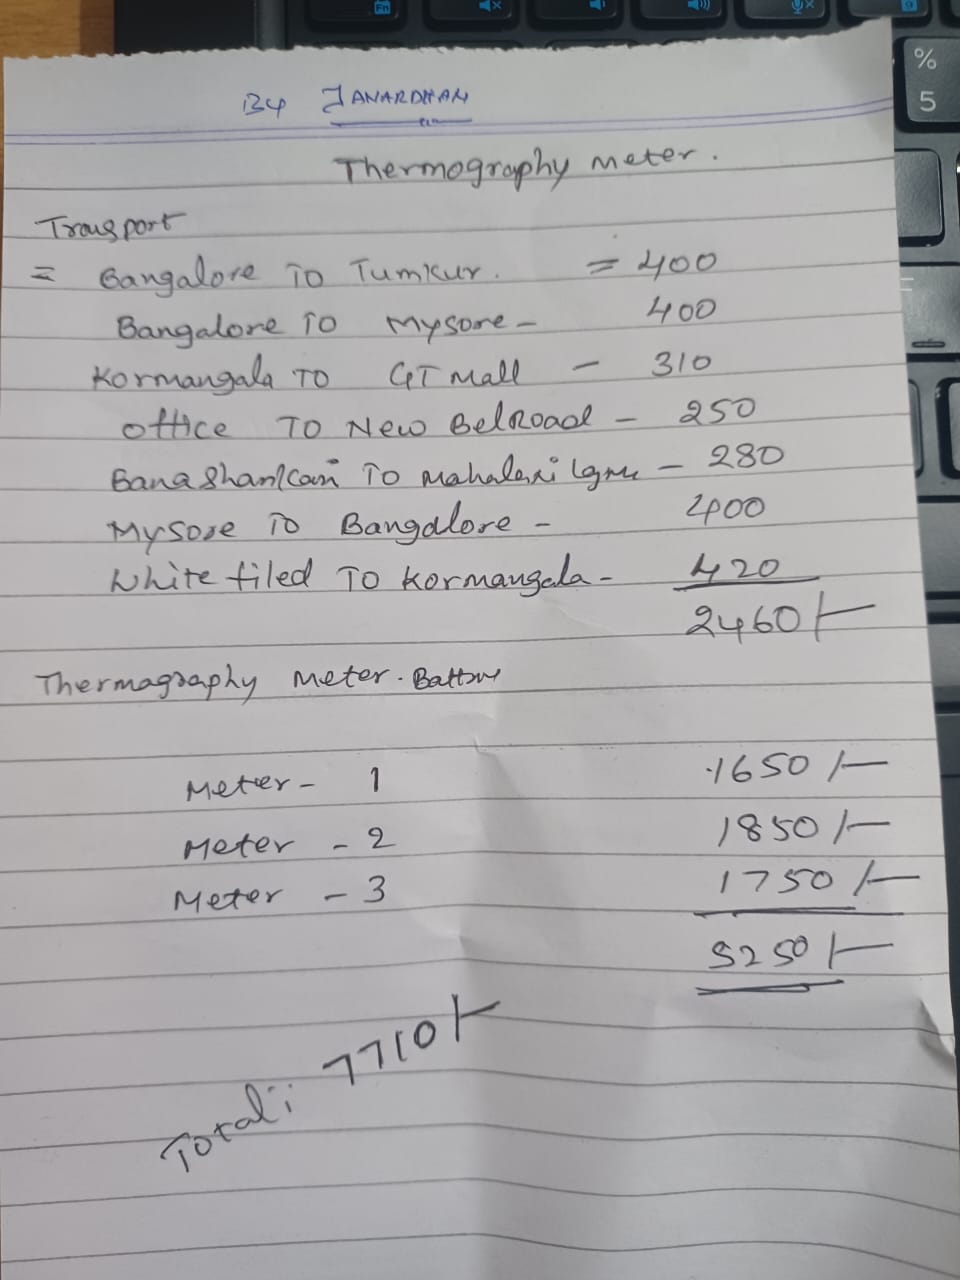 By JANARDHAN
Thermography meter.
Transport
= Bangalore To Tumkur. = 400
Bangalore To Mysore - 400
Kormangala TO GT Mall - 310
office TO New BelRoad - 250
Banashankari To Mahalaxi - 280
Mysore To Bangalore - 400
White filed To Kormangala - 420
2460/-
Thermagraphy Meter.
Meter - 1 1650/-
Meter - 2 1850/-
Meter - 3 1750/-
5250/-
Total: 7710/-
%
5
Fn